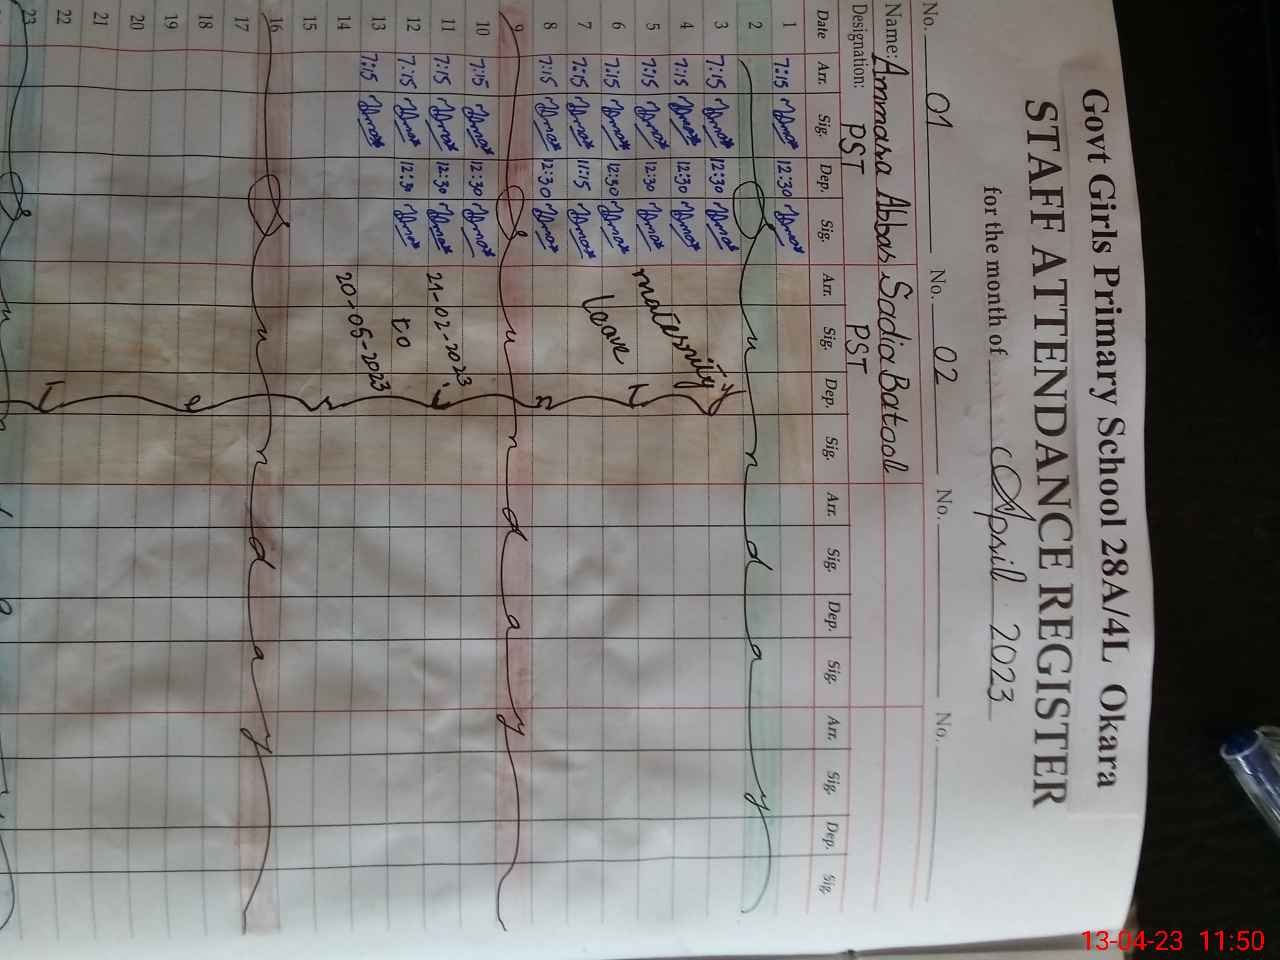 Govt Girls Primary School 28A/4L Okara
STAFF ATTENDANCE REGISTER
for the month of April 2023
No. 01 No. 02 No. No.
Name: Ammara Abbas Sadia Batool
Designation: PST PST
Date Arr. Sig. Dep. Sig. Arr. Sig. Dep. Sig. Arr. Sig. Dep. Sig. Arr. Sig. Dep. Sig.
1 7:15 12:30
2 Sunday
3 7:15 12:30
4 7:15 12:30 maternity
5 7:15 12:30
6 7:15 12:30 leave
7 7:15 11:15
8 7:15 12:30
9 Sunday
10 7:15 12:30
11 7:15 12:30 21-02-2023
12 7:15 12:30 to
13 7:15
14 20-05-2023
15
16 Sunday
17
18
19
20
21
22
23
13-04-23 11:50